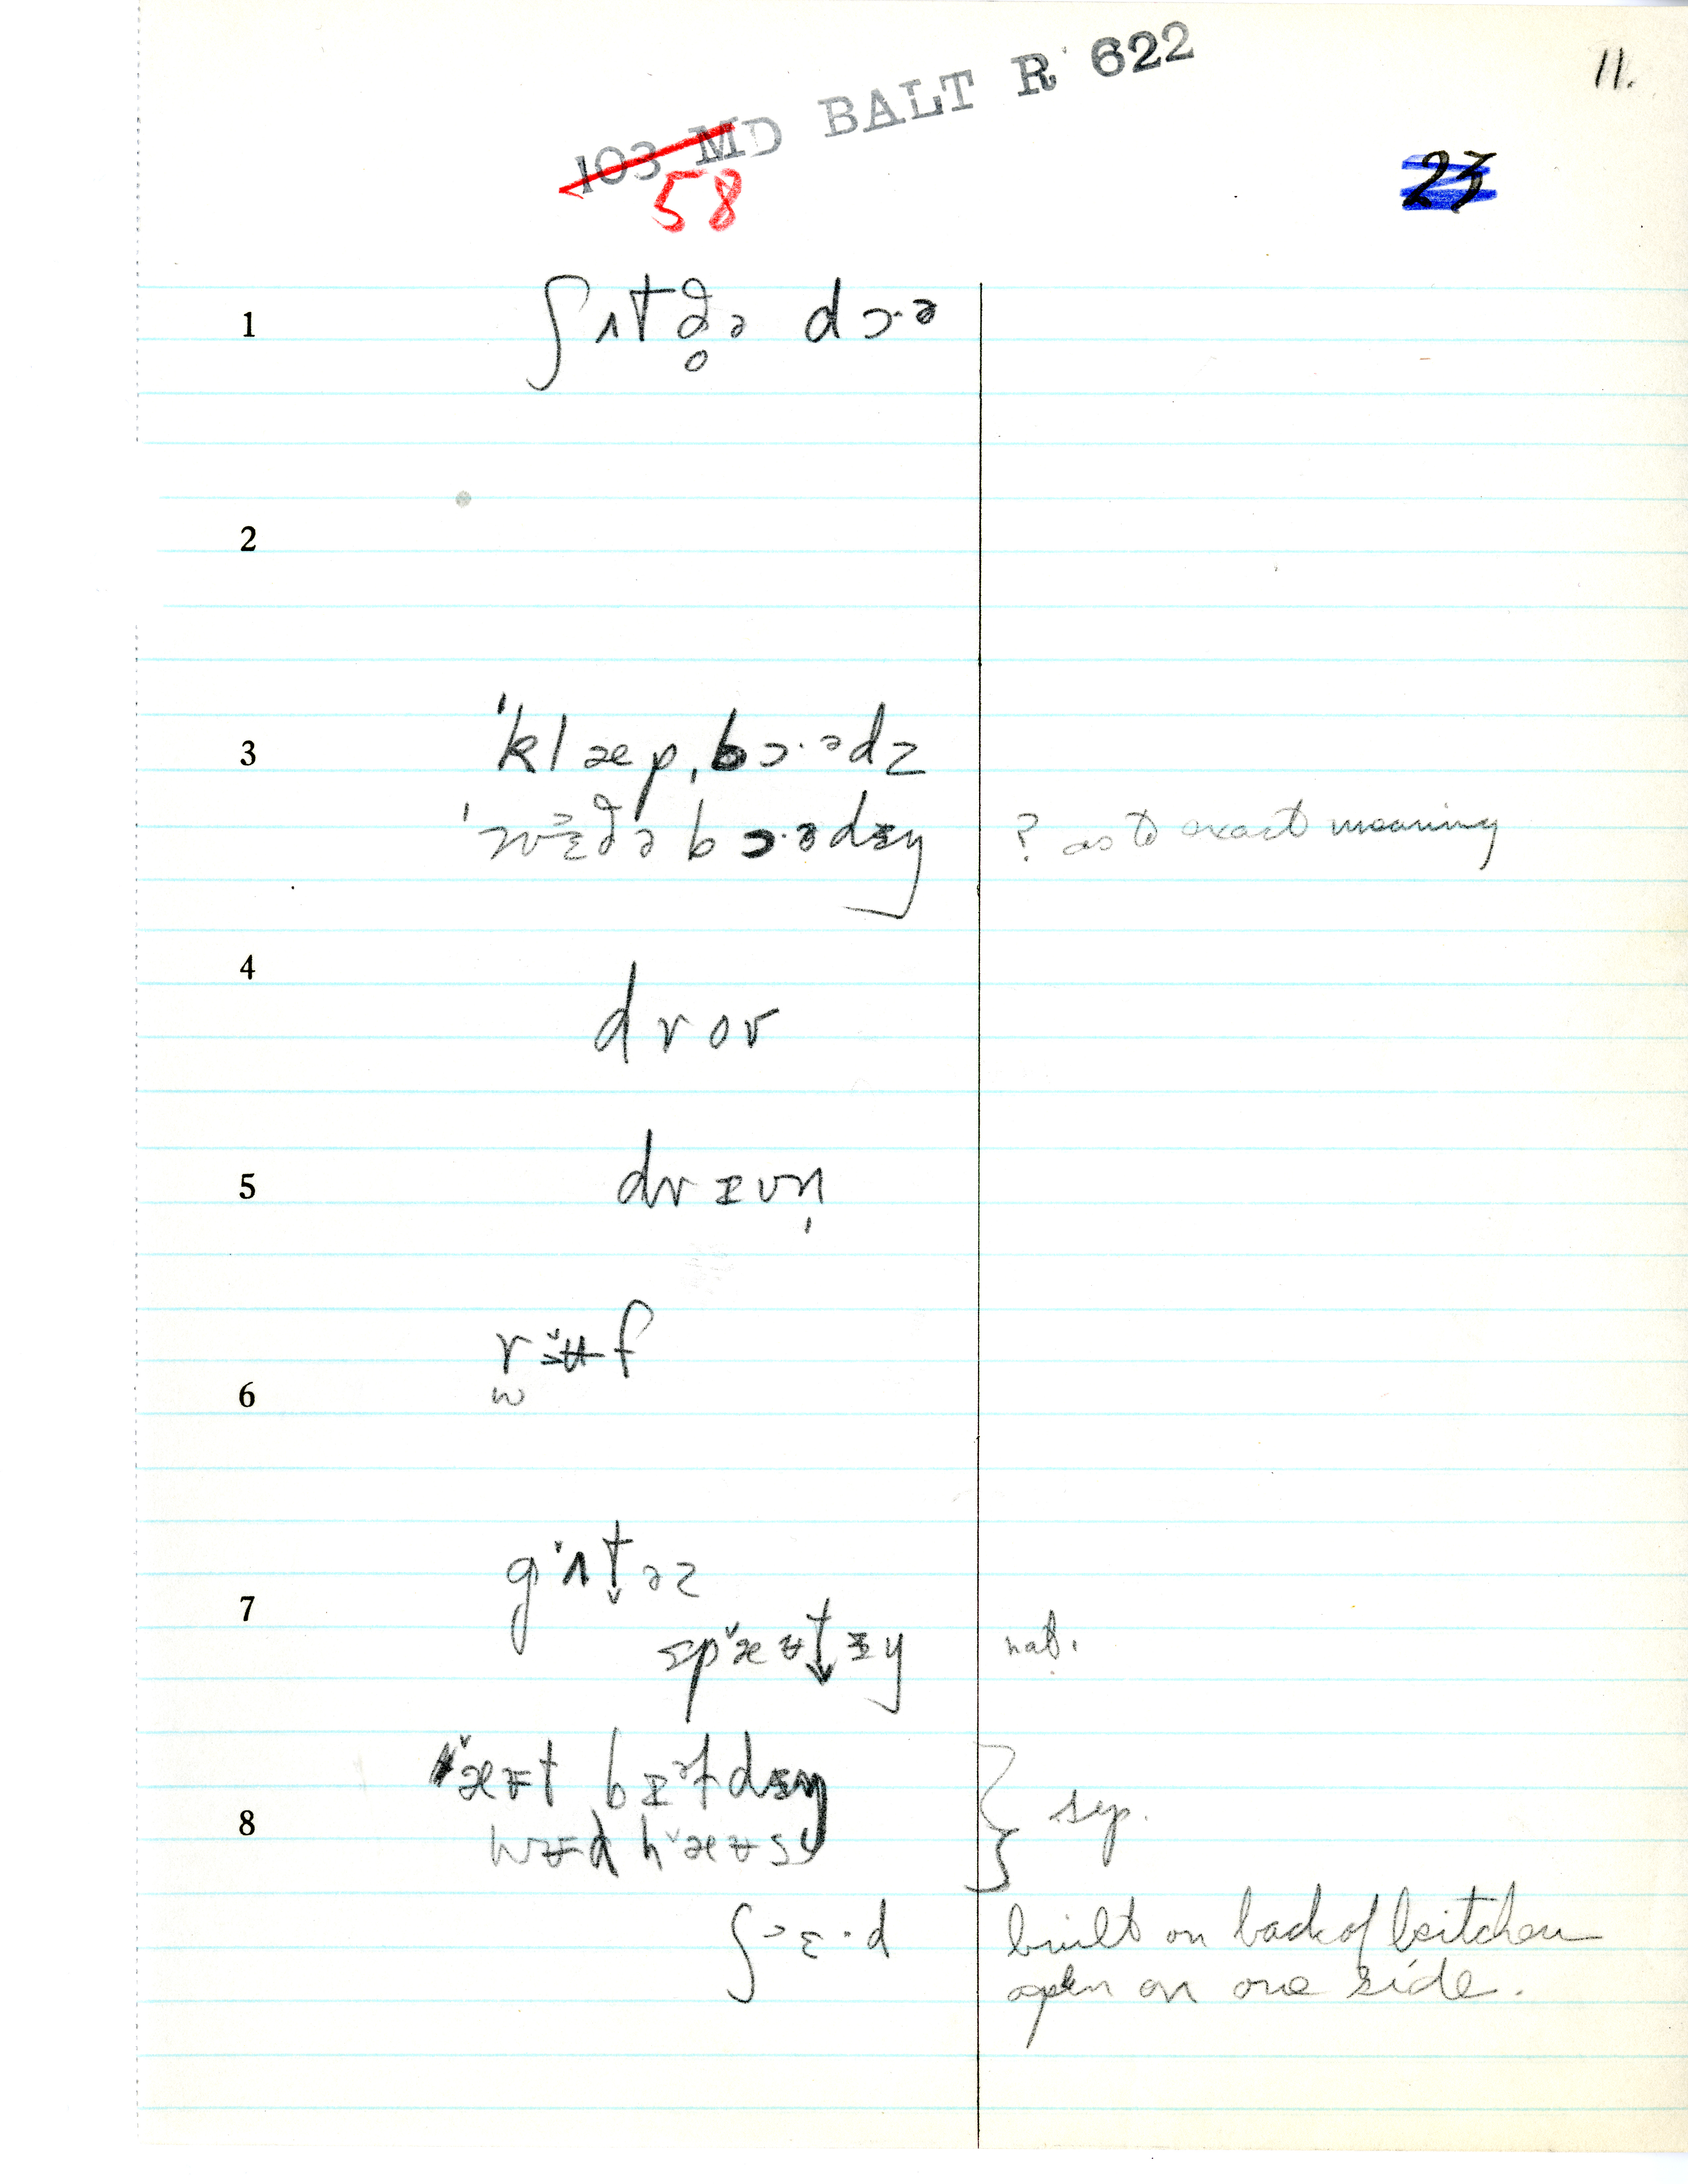 11.
103 MD BALT R 622
58
23
1 ʃʌtə̥ə dɔ·ə
2
3 ˈklæpˌbɔ·ədz
ˈwɛðəbɔ·ədɪŋ ? as to exact meaning
4 drov
5 drɪvn̩
6 f
7 gʌt̬əz
spæʊtɪŋ nat.
8 æʊt bɪəldɪŋ } sep.
wʊd hæʊs
ʃɛ·d built on back of kitchen
open on one side.